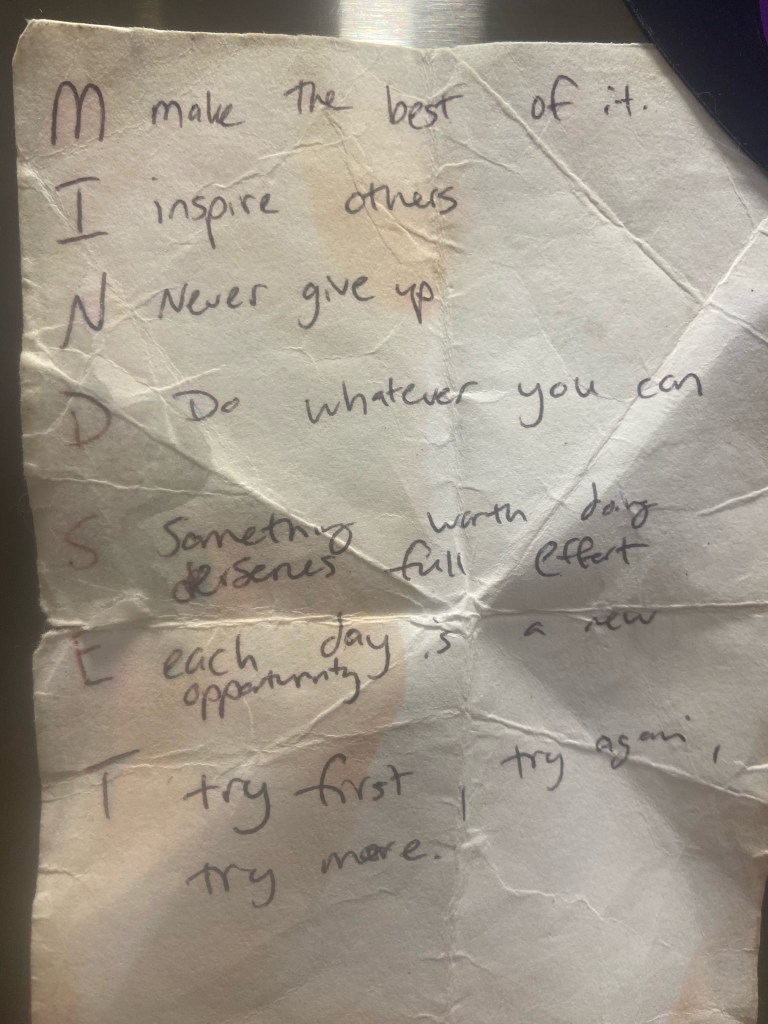 M make the best of it.
I inspire others
N Never give up
D Do whatever you can
S Something worth doing
deserves full effort
E each day is a new
opportunity
T try first, try again,
try more.